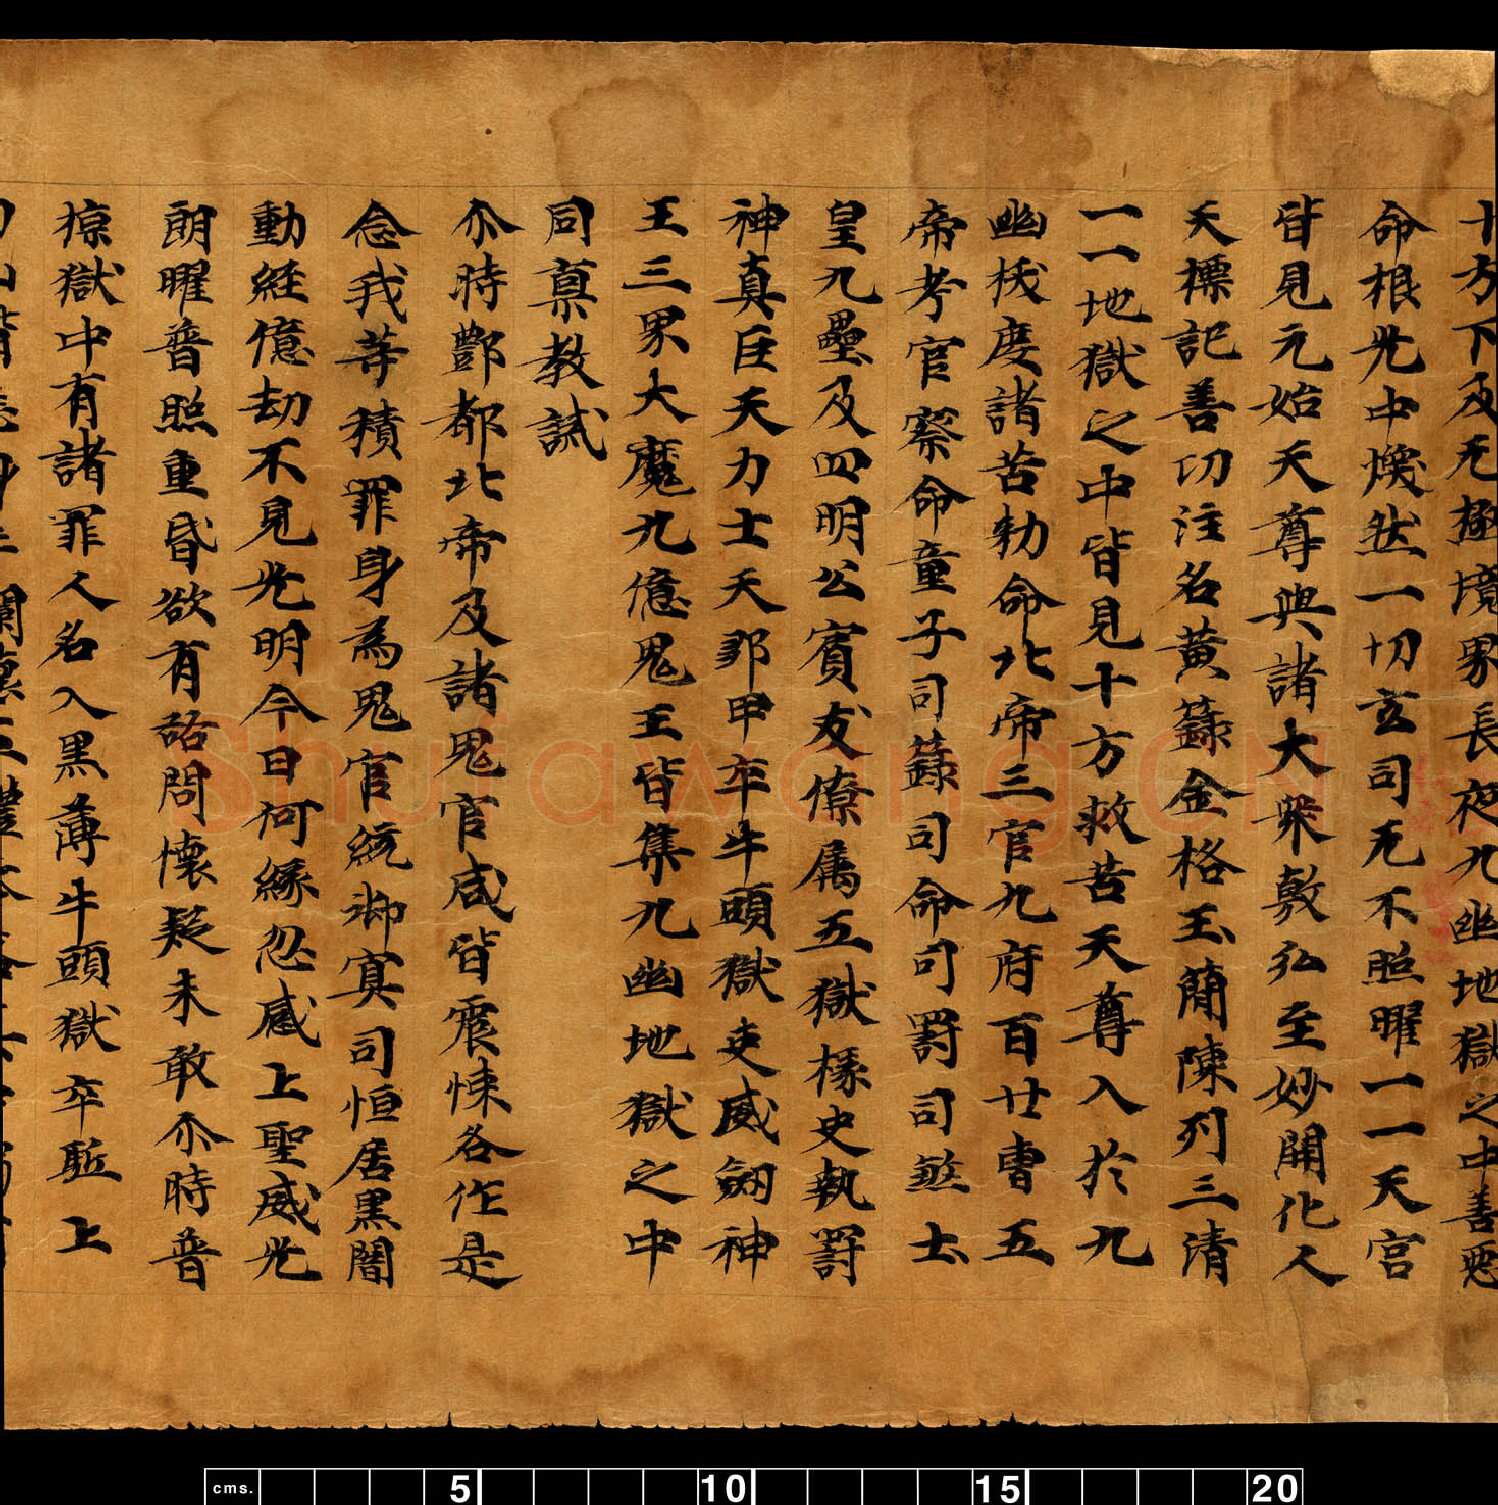 十方下及无極境界長夜九幽地獄之中善惡
命根光中煥然一切玄司无不照曜一一天宮
皆見元始天尊與諸大衆敷弘至妙開化人
天標記善功注名黃籙金格玉簡陳列三清
一一地獄之中皆見十方救苦天尊入於九
幽拔度諸苦勑命北帝三官九府百廿曹五
帝考官察命童子司籙司命司罰司煞士
皇九壘及四明公賓友僚属五獄掾史執罰
神真巨天力士天邪甲卒牛頭獄吏威劒神
王三界大魔九億鬼王皆集九幽地獄之中
同禀教誡
尒時酆都北帝及諸鬼官咸皆震悚各作是
念我等積罪身為鬼官統御寘司恒居黑闇
動經億劫不見光明今日何緣忽感上聖威光
朗曜普照重昏欲有諮問懷疑未敢尒時普
掠獄中有諸罪人名入黑薄牛頭獄卒駈上
cms. 5 10 15 20
Shufawang.CN